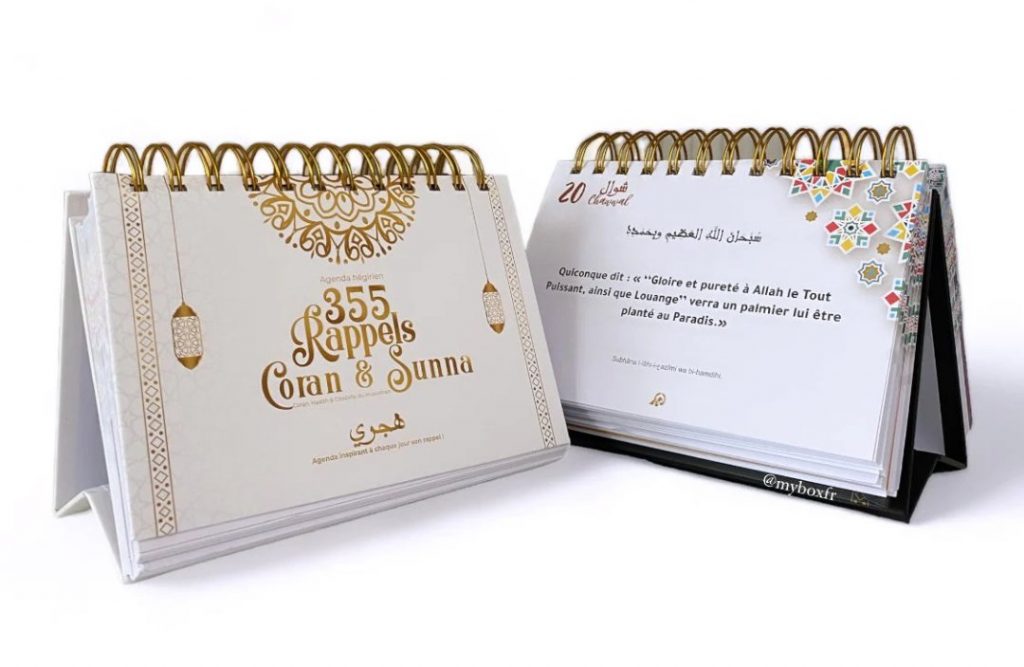 Agenda hégirien
355
Rappels
Coran & Sunna
Coran, Hadith & Citadelle du musulman
هجري
Agenda inspirant à chaque jour son rappel !
20 شوال
Chawwal
سُبْحَانَ اللَّهِ العَظِيمِ وبِحَمدِهِ
Quiconque dit : « “Gloire et pureté à Allah le Tout
Puissant, ainsi que Louange” verra un palmier lui être
planté au Paradis.»
@myboxfr